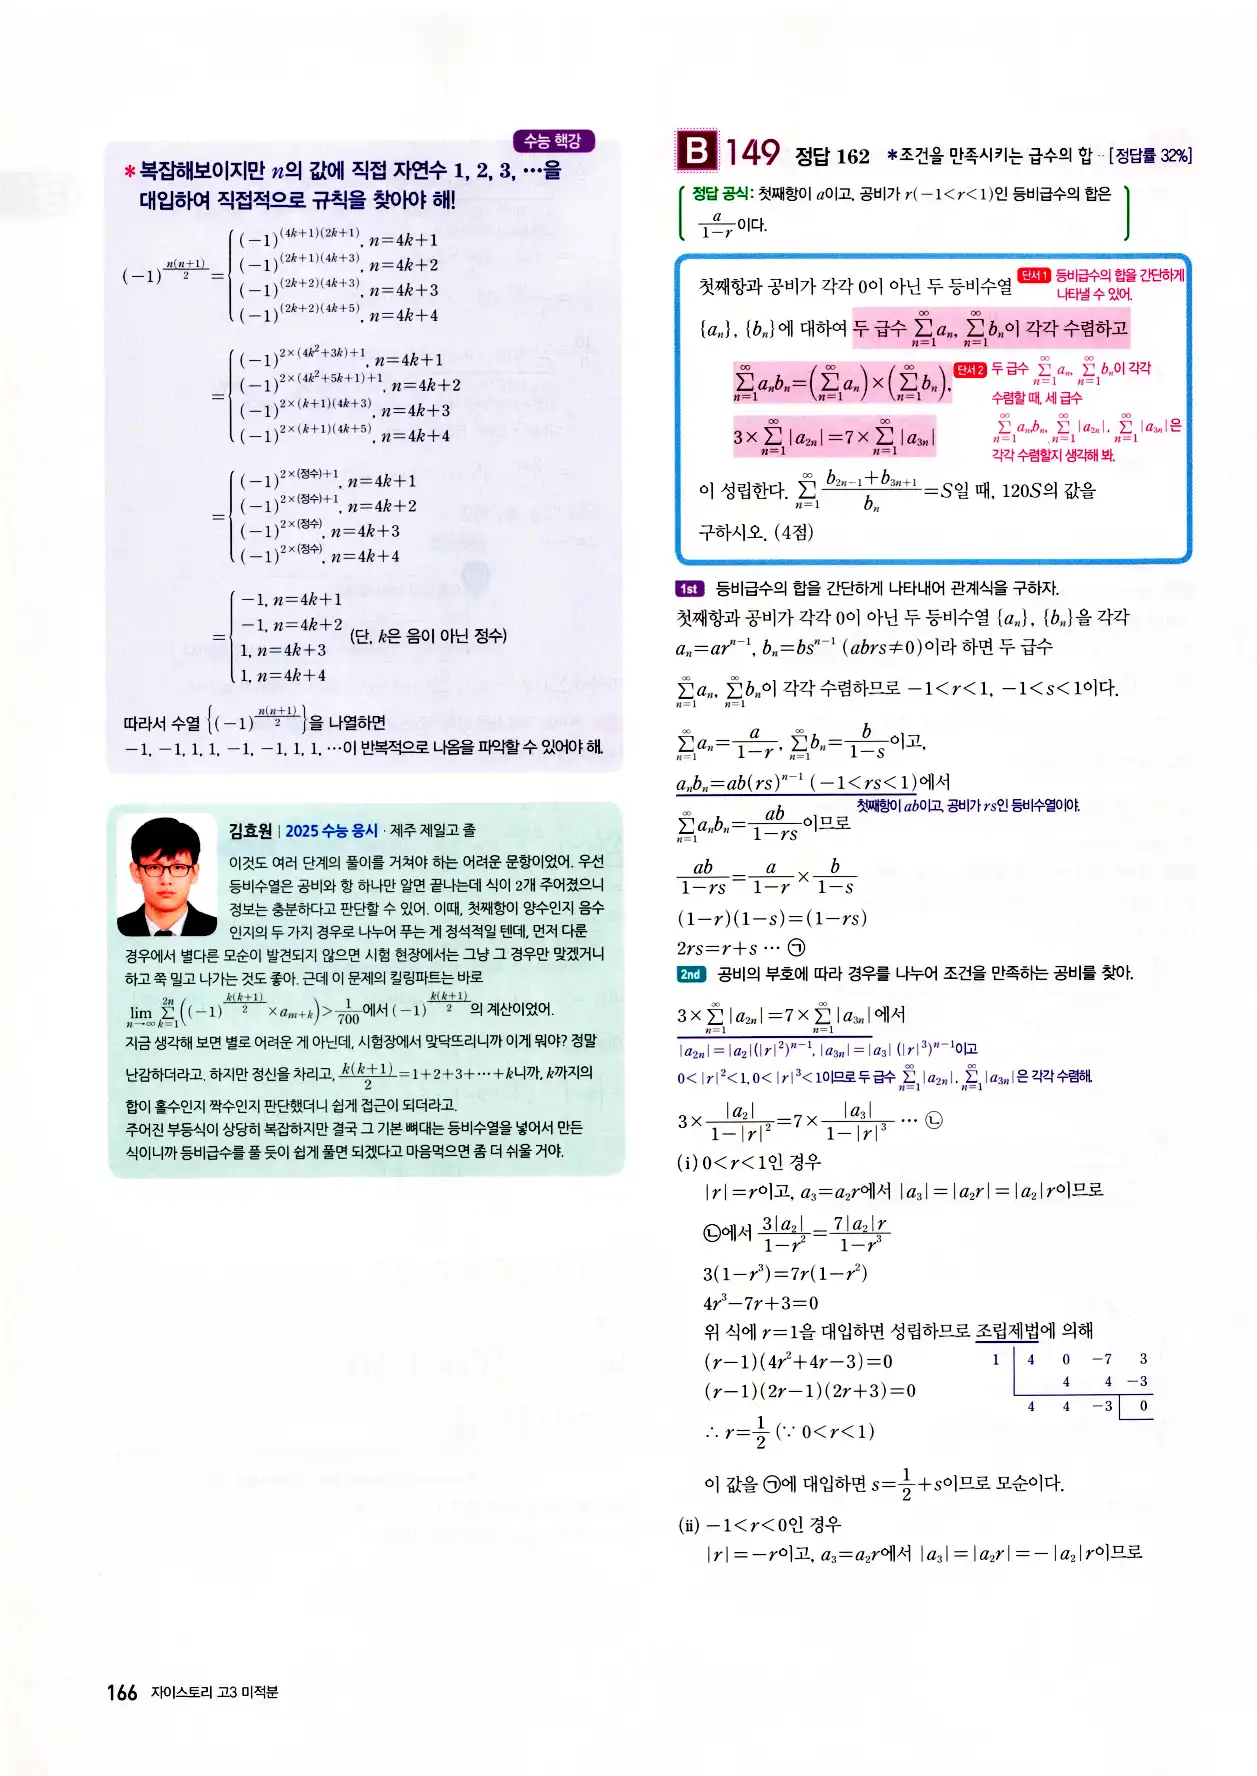 수능 핵강
* 복잡해보이지만 n의 값에 직접 자연수 1, 2, 3, …을
대입하여 직접적으로 규칙을 찾아야 해!
(-1)^{n(n+1)/2} = { (-1)^{(4k+1)(2k+1)}, n=4k+1
(-1)^{(2k+1)(4k+3)}, n=4k+2
(-1)^{(2k+2)(4k+3)}, n=4k+3
(-1)^{(2k+2)(4k+5)}, n=4k+4
= { (-1)^{2×(4k²+3k)+1}, n=4k+1
(-1)^{2×(4k²+5k+1)+1}, n=4k+2
(-1)^{2×(k+1)(4k+3)}, n=4k+3
(-1)^{2×(k+1)(4k+5)}, n=4k+4
= { (-1)^{2×(정수)+1}, n=4k+1
(-1)^{2×(정수)+1}, n=4k+2
(-1)^{2×(정수)}, n=4k+3
(-1)^{2×(정수)}, n=4k+4
= { -1, n=4k+1
-1, n=4k+2
1, n=4k+3
1, n=4k+4
(단, k은 음이 아닌 정수)
따라서 수열 {(-1)^{n(n+1)/2}}을 나열하면
-1, -1, 1, 1, -1, -1, 1, 1, …이 반복적으로 나옴을 파악할 수 있어야 해.
김효원 | 2025 수능 응시 · 제주 제일고 졸
이것도 여러 단계의 풀이를 거쳐야 하는 어려운 문항이었어. 우선
등비수열은 공비와 항 하나만 알면 끝나는데 식이 2개 주어졌으니
정보는 충분하다고 판단할 수 있어. 이때, 첫째항이 양수인지 음수
인지의 두 가지 경우로 나누어 푸는 게 정석적일 텐데, 먼저 다룬
경우에서 별다른 모순이 발견되지 않으면 시험 현장에서는 그냥 그 경우만 맞겠거니
하고 쭉 밀고 나가는 것도 좋아. 근데 이 문제의 킬링파트는 바로
lim_{n→∞} Σ_{k=1}^{2n} ((-1)^{k(k+1)/2} × a_{m+k}) > 1/700 에서 (-1)^{k(k+1)/2} 의 계산이었어.
지금 생각해 보면 별로 어려운 게 아닌데, 시험장에서 맞닥뜨리니까 이게 뭐야? 정말
난감하더라고. 하지만 정신을 차리고, k(k+1)/2 = 1+2+3+…+k니까, k까지의
합이 홀수인지 짝수인지 판단했더니 쉽게 접근이 되더라고.
주어진 부등식이 상당히 복잡하지만 결국 그 기본 뼈대는 등비수열을 넣어서 만든
식이니까 등비급수를 풀 듯이 쉽게 풀면 되겠다고 마음먹으면 좀 더 쉬울 거야.
166 자이스토리 고3 미적분
B 149 정답 162 *조건을 만족시키는 급수의 합 ·· [정답률 32%]
정답 공식: 첫째항이 a이고, 공비가 r(-1<r<1)인 등비급수의 합은
a/(1-r)이다.
첫째항과 공비가 각각 0이 아닌 두 등비수열 단서1 등비급수의 합을 간단하게
나타낼 수 있어.
{a_n}, {b_n}에 대하여 두 급수 Σ_{n=1}^{∞} a_n, Σ_{n=1}^{∞} b_n이 각각 수렴하고
Σ_{n=1}^{∞} a_n b_n = (Σ_{n=1}^{∞} a_n) × (Σ_{n=1}^{∞} b_n), 단서2 두 급수 Σ_{n=1}^{∞} a_n, Σ_{n=1}^{∞} b_n이 각각
수렴할 때, 세 급수
3 × Σ_{n=1}^{∞} |a_{2n}| = 7 × Σ_{n=1}^{∞} |a_{3n}| Σ_{n=1}^{∞} a_n b_n, Σ_{n=1}^{∞} |a_{2n}|, Σ_{n=1}^{∞} |a_{3n}|은
각각 수렴할지 생각해 봐.
이 성립한다. Σ_{n=1}^{∞} (b_{2n-1}+b_{3n+1})/b_n = S일 때, 120S의 값을
구하시오. (4점)
1st 등비급수의 합을 간단하게 나타내어 관계식을 구하자.
첫째항과 공비가 각각 0이 아닌 두 등비수열 {a_n}, {b_n}을 각각
a_n=ar^{n-1}, b_n=bs^{n-1} (abrs≠0)이라 하면 두 급수
Σ_{n=1}^{∞} a_n, Σ_{n=1}^{∞} b_n이 각각 수렴하므로 -1<r<1, -1<s<1이다.
Σ_{n=1}^{∞} a_n = a/(1-r), Σ_{n=1}^{∞} b_n = b/(1-s)이고,
a_n b_n = ab(rs)^{n-1} (-1<rs<1)에서
첫째항이 ab이고, 공비가 rs인 등비수열이야.
Σ_{n=1}^{∞} a_n b_n = ab/(1-rs)이므로
ab/(1-rs) = a/(1-r) × b/(1-s)
(1-r)(1-s)=(1-rs)
2rs=r+s … ㉠
2nd 공비의 부호에 따라 경우를 나누어 조건을 만족하는 공비를 찾아.
3 × Σ_{n=1}^{∞} |a_{2n}| = 7 × Σ_{n=1}^{∞} |a_{3n}|에서
|a_{2n}|=|a_2|(|r|²)^{n-1}, |a_{3n}|=|a_3|(|r|³)^{n-1}이고
0<|r|²<1, 0<|r|³<1이므로 두 급수 Σ_{n=1}^{∞} |a_{2n}|, Σ_{n=1}^{∞} |a_{3n}|은 각각 수렴해.
3 × |a_2|/(1-|r|²) = 7 × |a_3|/(1-|r|³) … ㉡
(i) 0<r<1인 경우
|r|=r이고, a_3=a_2r에서 |a_3|=|a_2r|=|a_2|r이므로
㉡에서 3|a_2|/(1-r²) = 7|a_2|r/(1-r³)
3(1-r³)=7r(1-r²)
4r³-7r+3=0
위 식에 r=1을 대입하면 성립하므로 조립제법에 의해
(r-1)(4r²+4r-3)=0 1 | 4 0 -7 3
4 4 -3
(r-1)(2r-1)(2r+3)=0
4 4 -3 | 0
∴ r=1/2 (∵ 0<r<1)
이 값을 ㉠에 대입하면 s=1/2+s이므로 모순이다.
(ii) -1<r<0인 경우
|r|=-r이고, a_3=a_2r에서 |a_3|=|a_2r|=-|a_2|r이므로